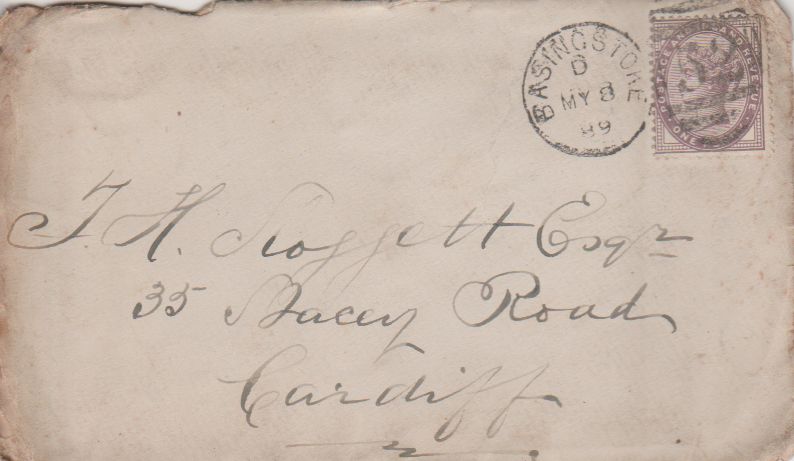 BASINGSTOKE
D
MY 8
89
POSTAGE AND INLAND REVENUE
ONE
T. H. Esqr
35 Stacey Road
Cardiff